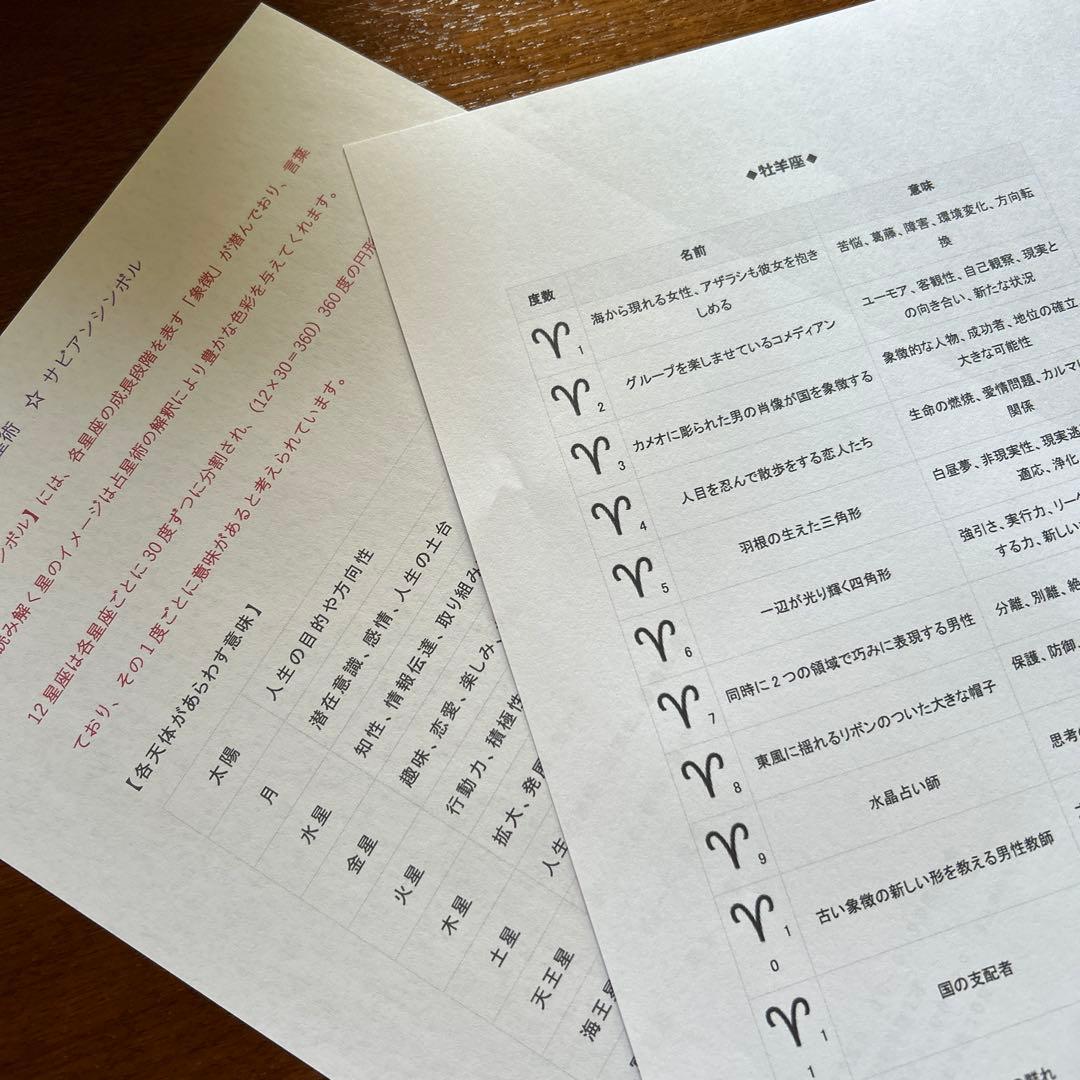 星術 ☆ サビアンシンボル
ンボル】には、各星座の成長段階を表す「象徴」が潜んでおり、言葉
読み解く星のイメージは占星術の解釈により豊かな色彩を与えてくれます。
12星座は各星座ごとに30度ずつに分割され、(12×30=360)360度の円形
ており、その1度ごとに意味があると考えられています。
【各天体があらわす意味】
太陽 人生の目的や方向性
月 潜在意識、感情、人生の土台
水星 知性、情報伝達、取り組み
金星 趣味、恋愛、楽しみ、
火星 行動力、積極性
木星 拡大、発展
土星 人生
天王星
海王星
◆牡羊座◆
度数 名前 意味
♈1 海から現れる女性、アザラシも彼女を抱き
しめる
苦悩、葛藤、障害、環境変化、方向転
換
♈2 グループを楽しませているコメディアン
ユーモア、客観性、自己観察、現実と
の向き合い、新たな状況
♈3 カメオに彫られた男の肖像が国を象徴する
象徴的な人物、成功者、地位の確立
大きな可能性
♈4 人目を忍んで散歩をする恋人たち
生命の燃焼、愛情問題、カルマ
関係
♈5 羽根の生えた三角形
白昼夢、非現実性、現実逃
適応、浄化
♈6 一辺が光り輝く四角形
強引さ、実行力、リー
する力、新しい
♈7 同時に2つの領域で巧みに表現する男性
分離、別離、絶
♈8 東風に揺れるリボンのついた大きな帽子
保護、防御、
♈9 水晶占い師
思考の
♈1
0
古い象徴の新しい形を教える男性教師
♈1
1
国の支配者